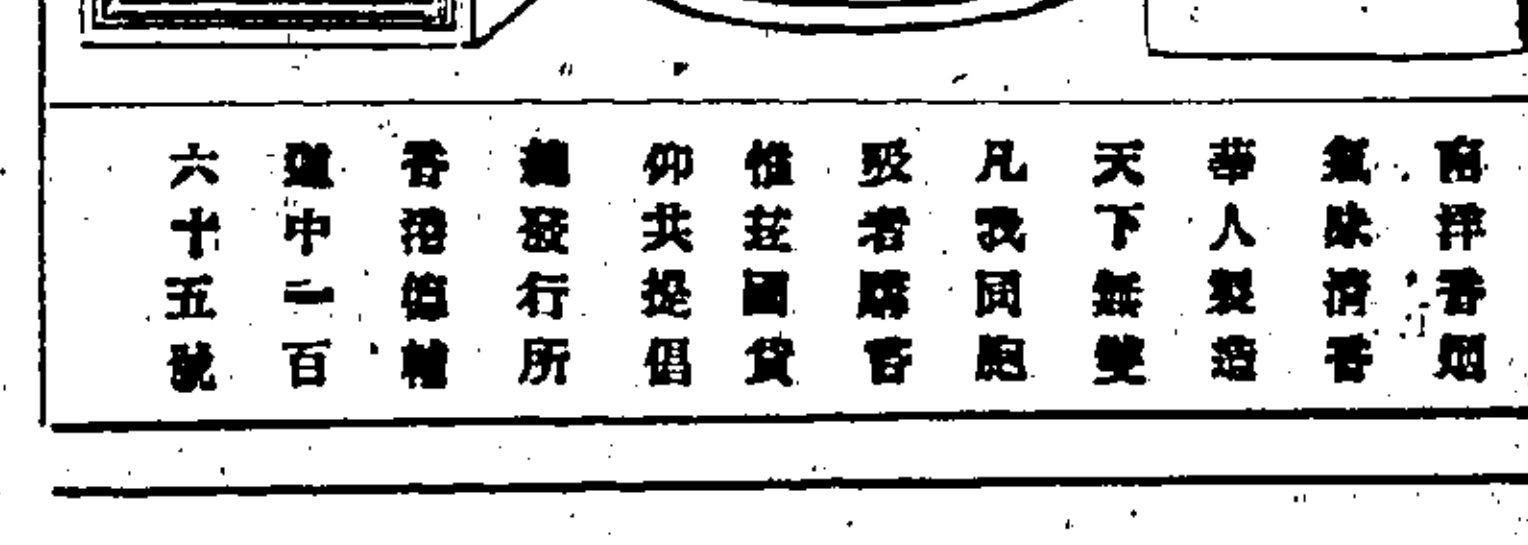 南洋香烟
氣味清香
華人製造
天下無雙
凡我同胞
吸者購嘗
惟茲國貨
仰共提倡
總發行所
香港德輔
道中一百
六十五號